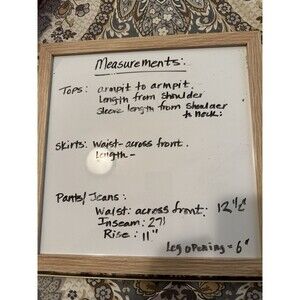 Measurements:
Tops: armpit to armpit.
Length from shoulder
Sleeve length from shoulder
to Neck:
Skirts: Waist- across front.
Length -
Pants/ Jeans:
Waist: across front: 12 1/2"
Inseam: 27"
Rise: 11"
Leg opening = 6"